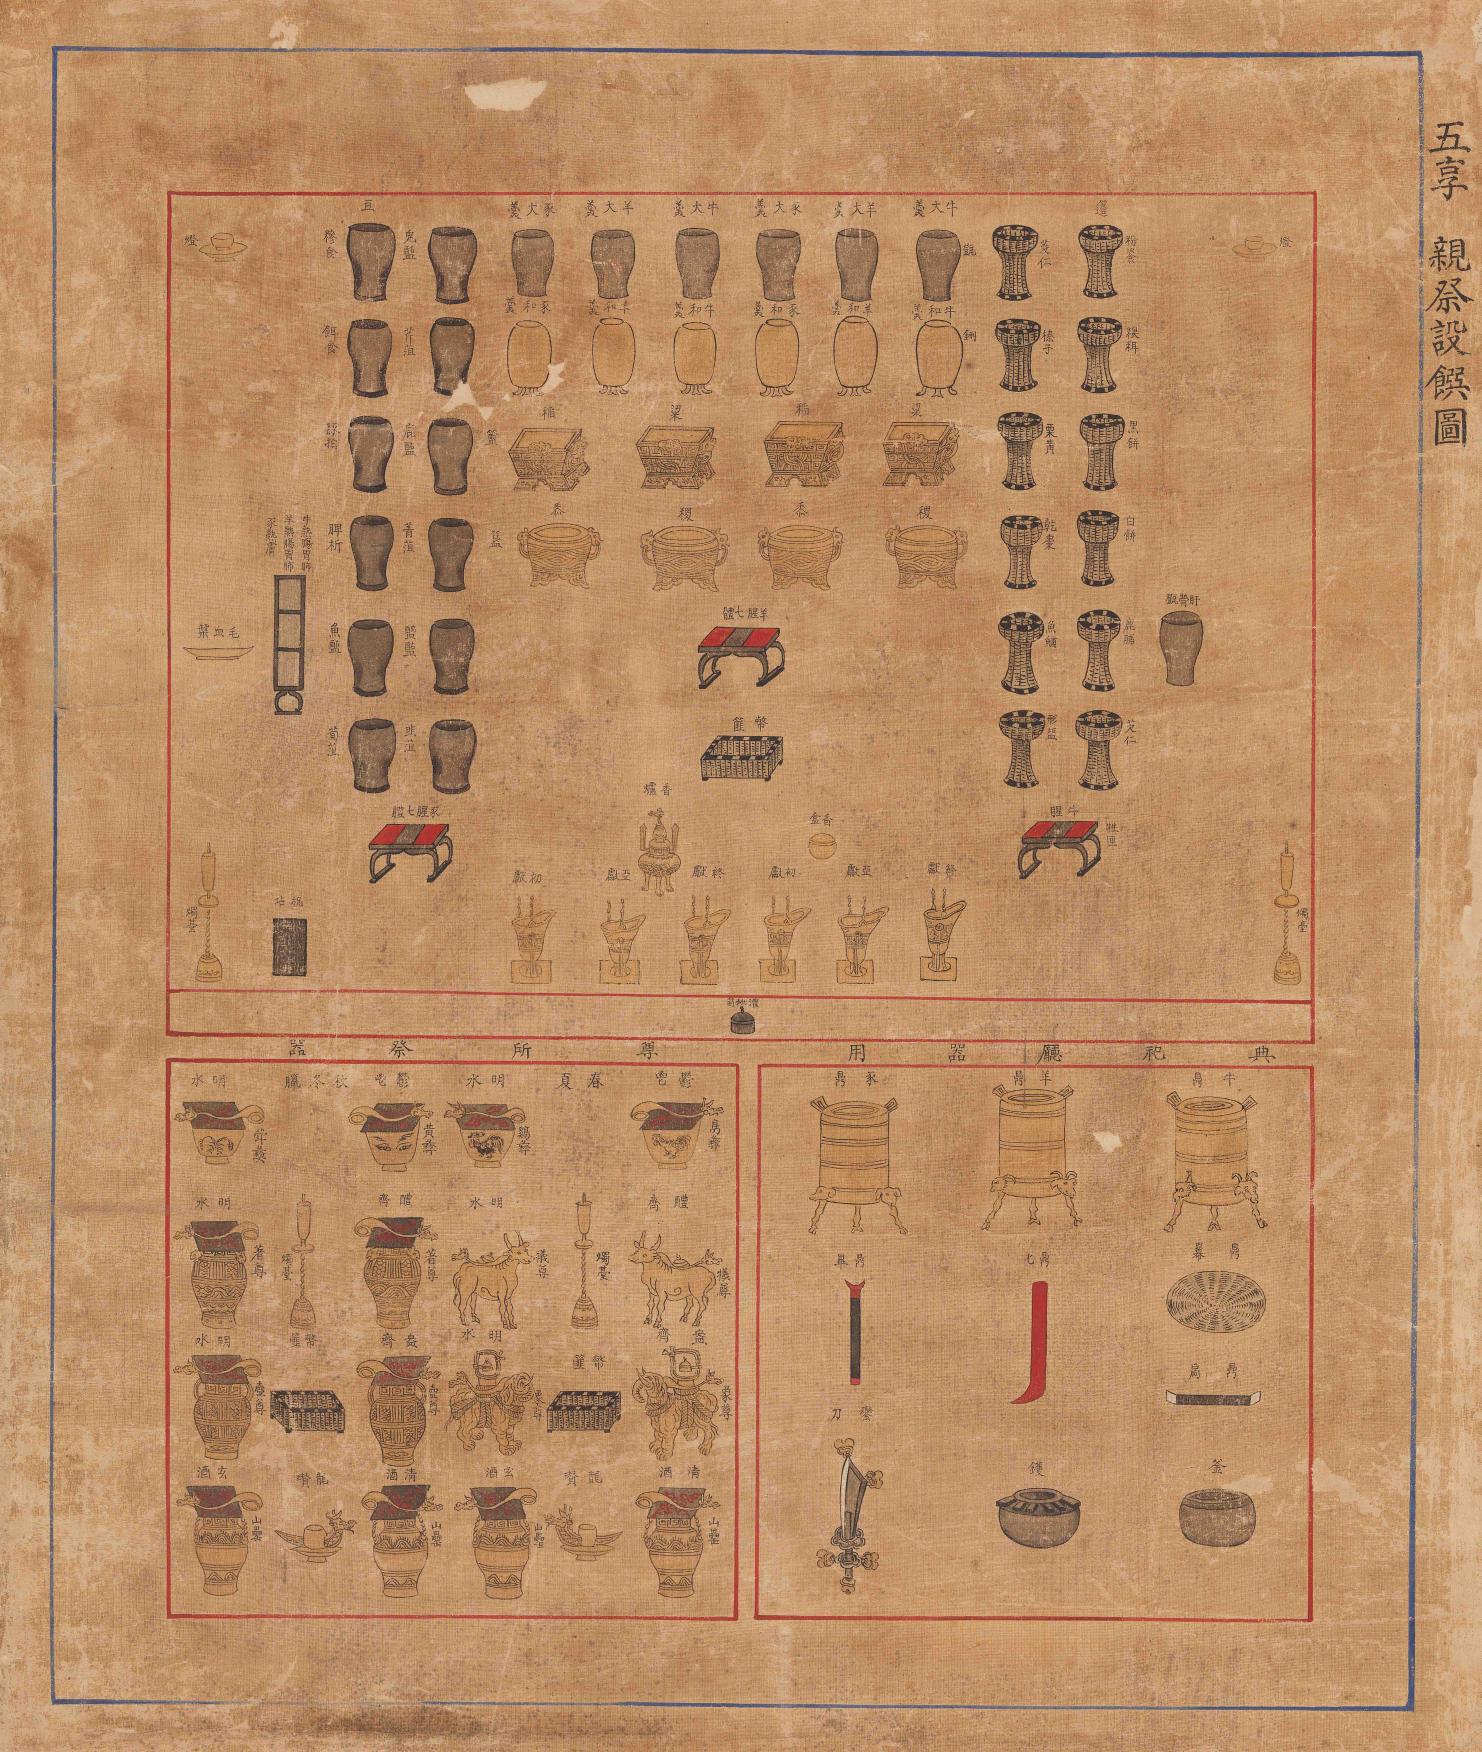 五享 親祭設饌圖
燈
籩
粉餈
菱仁
牛大羹
羊大羹
豕大羹
牛大羹
羊大羹
豕大羹
豆
兎醢
糝食
燈
糗餌
榛子
鉶
牛和羹
羊和羹
豕和羹
牛和羹
羊和羹
豕和羹
芹菹
酏食
黑餠
栗黃
粱
稻
粱
稻
簠
鹿醢
豚拍
白餠
乾棗
稷
黍
稷
黍
簋
菁菹
脾析
牛熟腸胃肺
羊熟腸胃肺
豕熟膚
鹿脯
魚鱐
羊腥七體
醓醢
魚醢
毛血槃
芡仁
形鹽
幣篚
韭菹
筍菹
牛腥
牲匣
香盒
香爐
豕腥七體
燭臺
終獻
亞獻
初獻
終獻
亞獻
初獻
祝坫
燭臺
典祀廳器用
牛鼎
羊鼎
豕鼎
鼎冪
鼎匕
鼎畢
鼎扃
鑾刀
釜
鑊
尊所祭器
鬱鬯
鳥彝
春夏
明水
鷄彝
鬱鬯
黃彝
秋冬臘
明水
斝彝
醴齊
犧尊
燭臺
明水
犧尊
醴齊
著尊
燭臺
明水
著尊
盎齊
象尊
幣篚
明水
象尊
盎齊
壺尊
幣篚
明水
壺尊
淸酒
山罍
龍瓚
玄酒
山罍
淸酒
山罍
龍瓚
玄酒
山罍